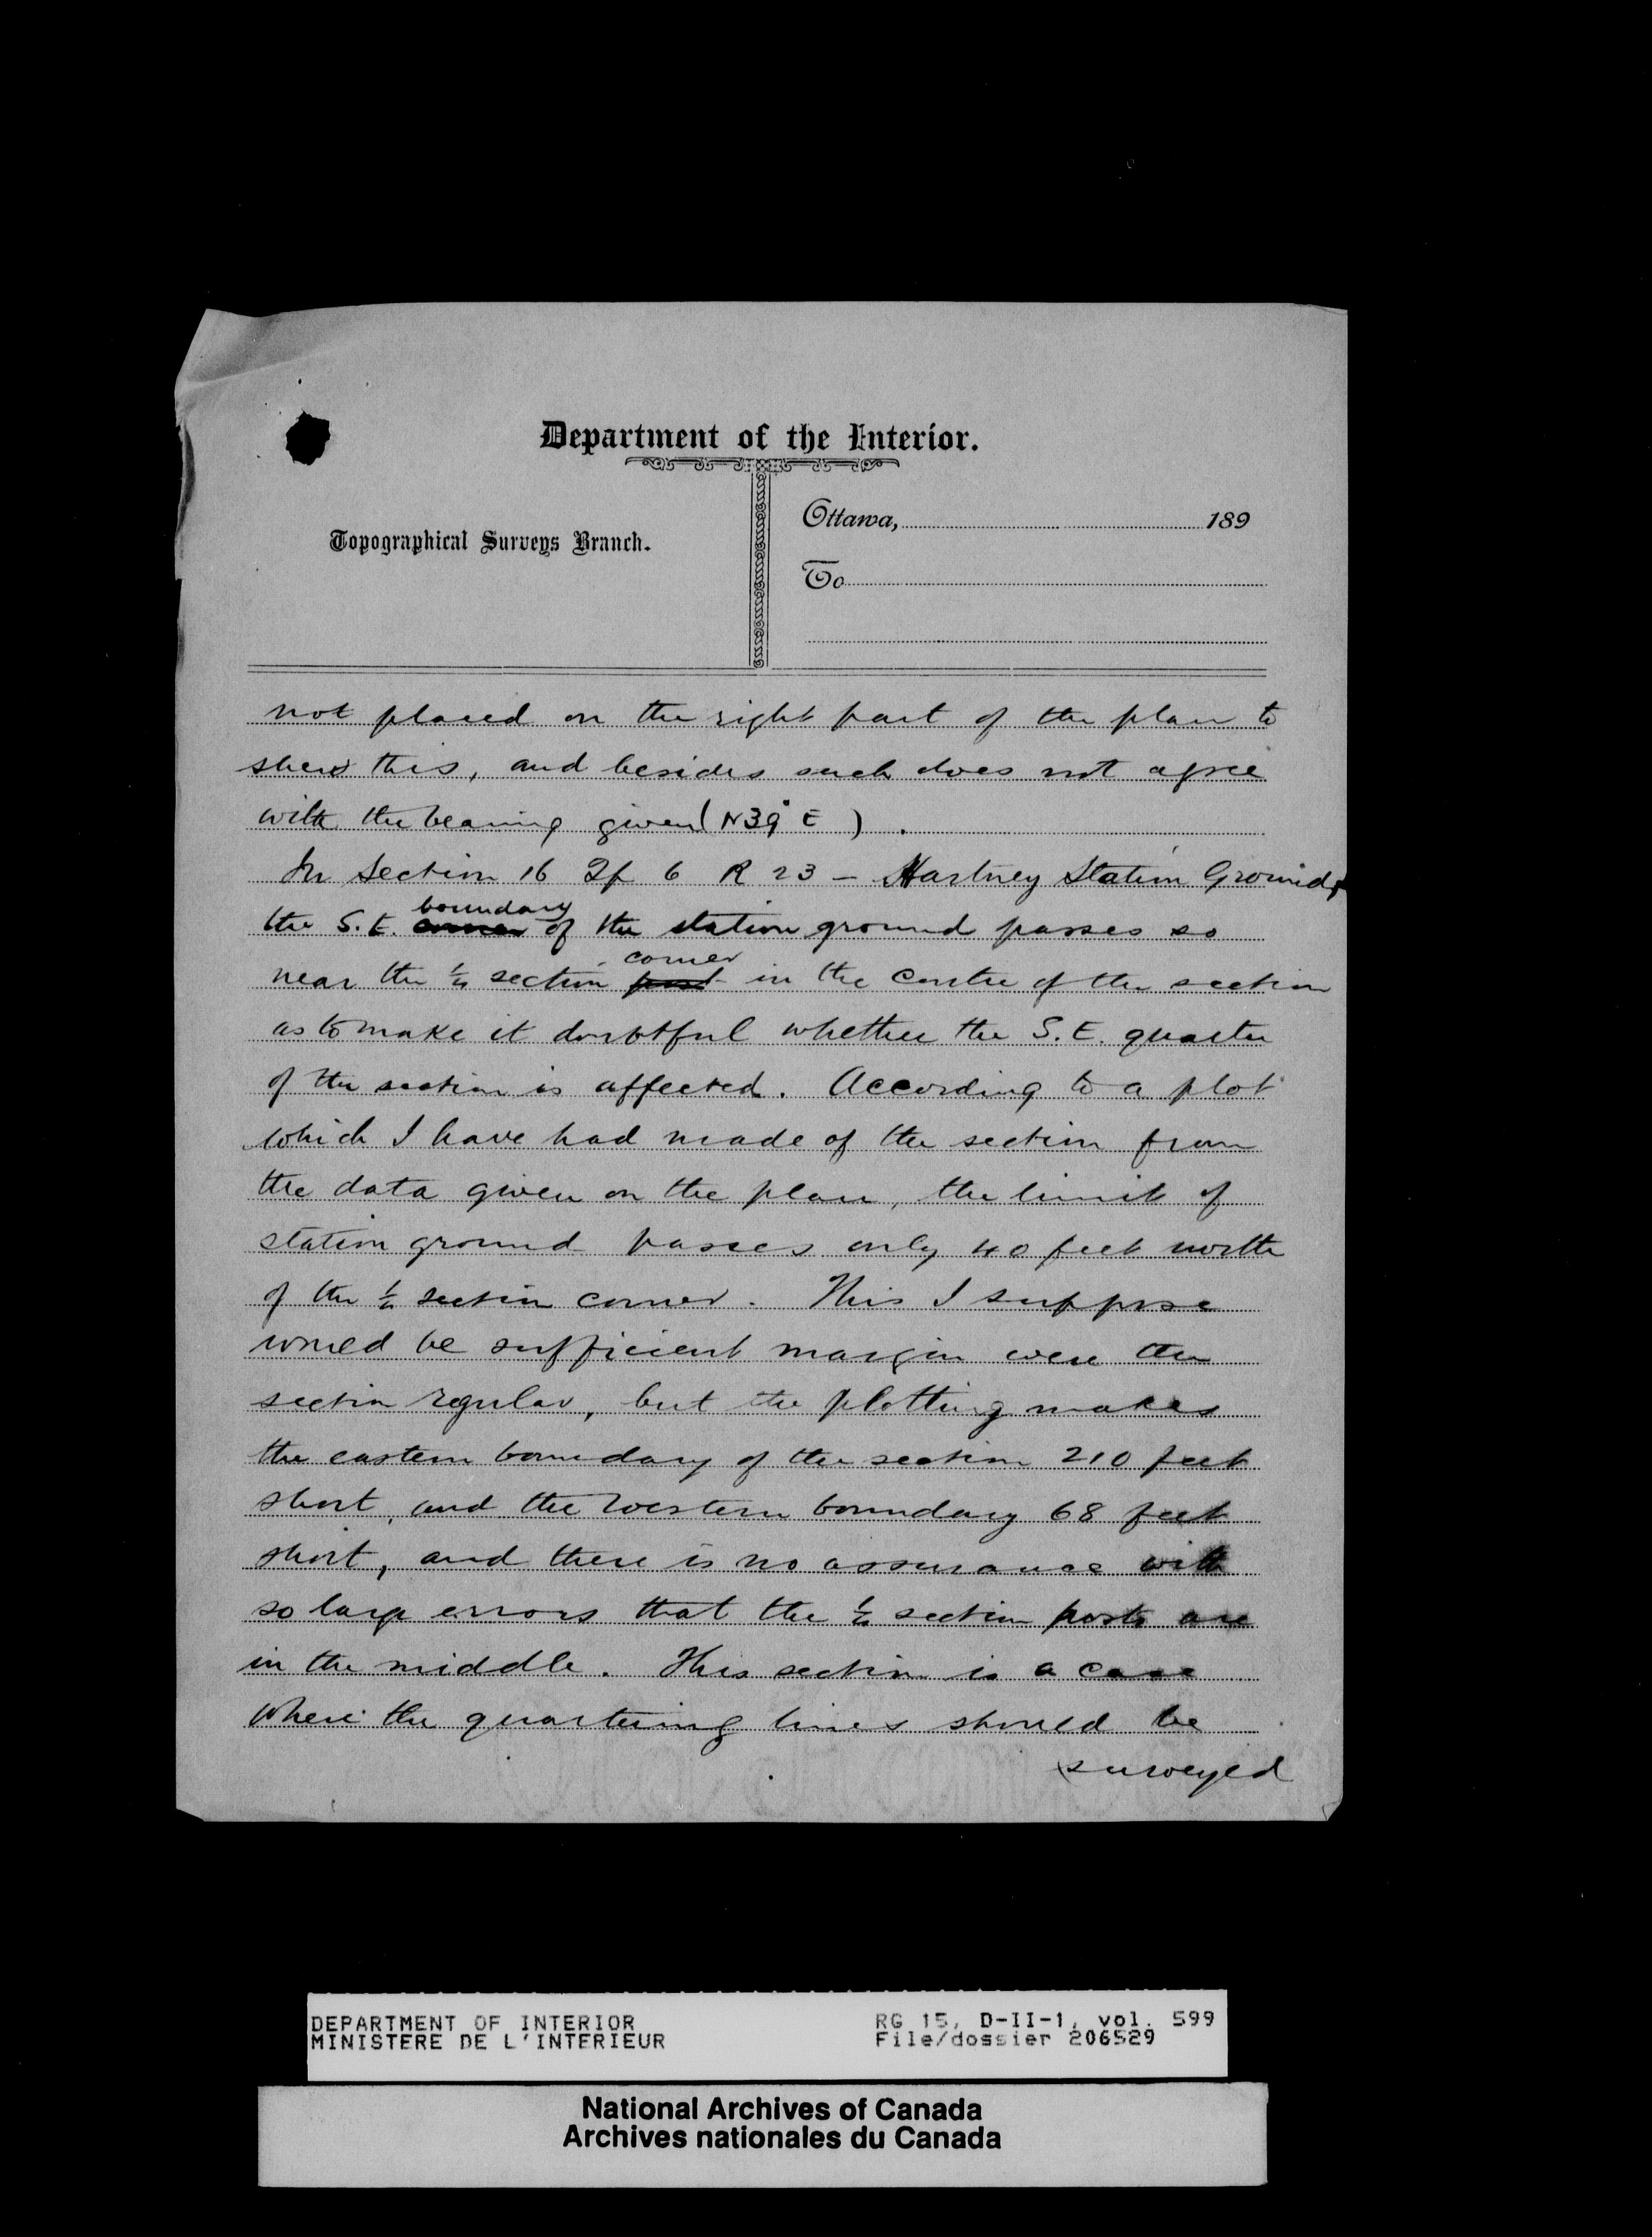 Department of the Interior.
Topographical Surveys Branch.
Ottawa, 189
To
not placed on the right part of the plan to
shew this, and besides such does not agree
with the bearing given (N 39° E).
In Section 16 Tp 6 R 23 – Hartney Station Grounds,
the S.E. corner boundary of the station ground passes so
near the ¼ section post corner in the centre of the section
as to make it doubtful whether the S.E. quarter
of the section is affected. According to a plot
which I have had made of the section from
the data given on the plan, the limit of
station ground passes only 40 feet north
of the ¼ section corner. This I suppose
would be sufficient margin were the
section regular, but the plotting makes
the eastern boundary of the section 210 feet
short, and the western boundary 68 feet
short, and there is no assurance with
so large errors that the ¼ section posts are
in the middle. This section is a case
where the quartering lines should be
surveyed
DEPARTMENT OF INTERIOR RG 15, D-II-1, vol. 599
MINISTERE DE L'INTERIEUR File/dossier 206529
National Archives of Canada
Archives nationales du Canada